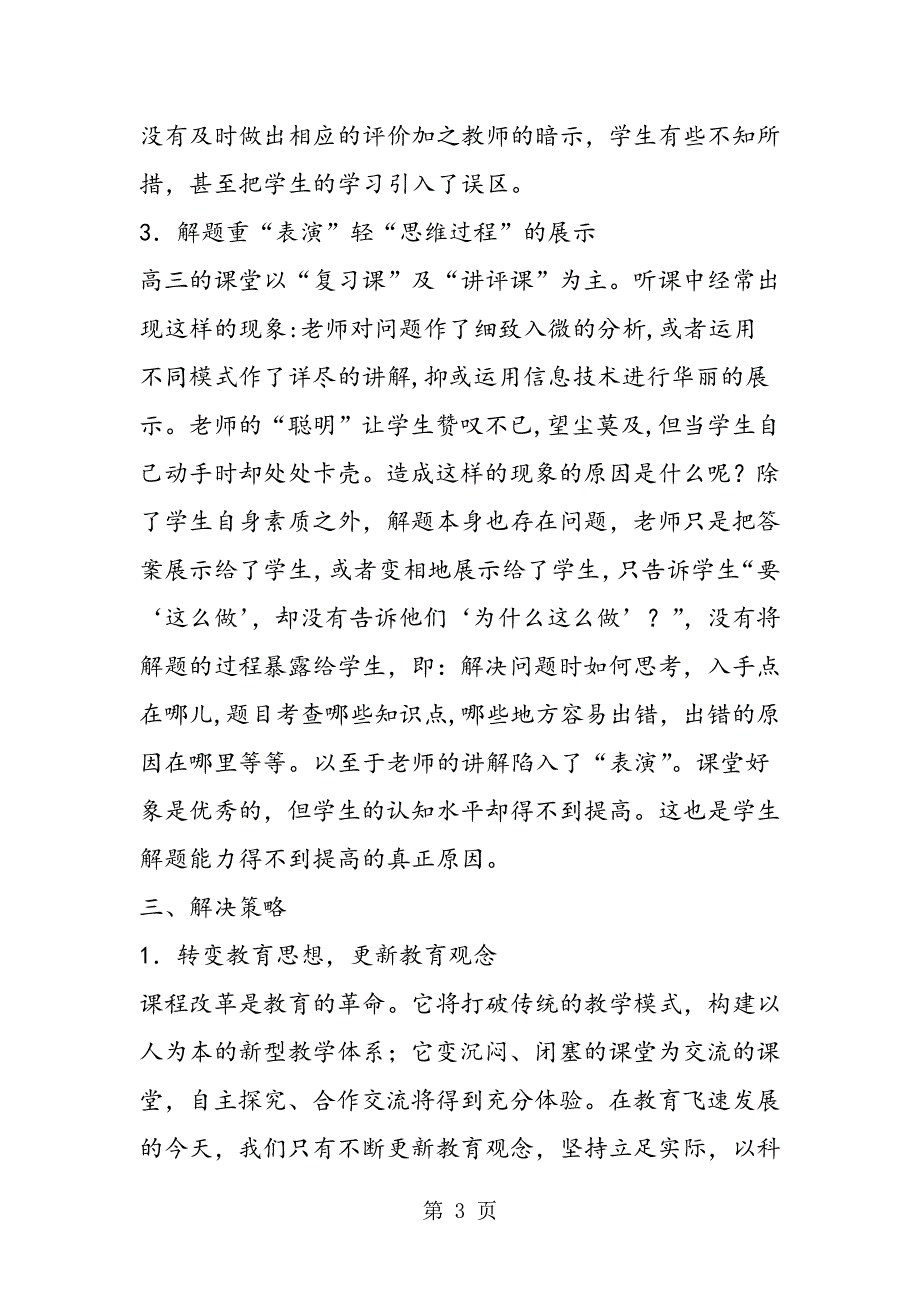 没有及时做出相应的评价加之教师的暗示，学生有些不知所
措，甚至把学生的学习引入了误区。
3．解题重“表演”轻“思维过程”的展示
高三的课堂以“复习课”及“讲评课”为主。听课中经常出
现这样的现象:老师对问题作了细致入微的分析,或者运用
不同模式作了详尽的讲解,抑或运用信息技术进行华丽的展
示。老师的“聪明”让学生赞叹不已,望尘莫及,但当学生自
己动手时却处处卡壳。造成这样的现象的原因是什么呢？除
了学生自身素质之外，解题本身也存在问题，老师只是把答
案展示给了学生,或者变相地展示给了学生,只告诉学生“要
‘这么做’，却没有告诉他们‘为什么这么做’？”，没有将
解题的过程暴露给学生，即：解决问题时如何思考，入手点
在哪儿,题目考查哪些知识点,哪些地方容易出错，出错的原
因在哪里等等。以至于老师的讲解陷入了“表演”。课堂好
象是优秀的，但学生的认知水平却得不到提高。这也是学生
解题能力得不到提高的真正原因。
三、解决策略
1．转变教育思想，更新教育观念
课程改革是教育的革命。它将打破传统的教学模式，构建以
人为本的新型教学体系；它变沉闷、闭塞的课堂为交流的课
堂，自主探究、合作交流将得到充分体验。在教育飞速发展
的今天，我们只有不断更新教育观念，坚持立足实际，以科
第 3 页